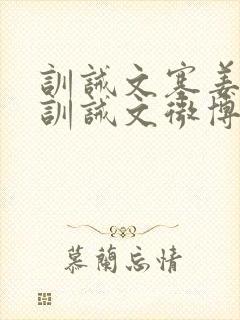 訓誡文塞姜
訓誡文微博
慕蘭忘情